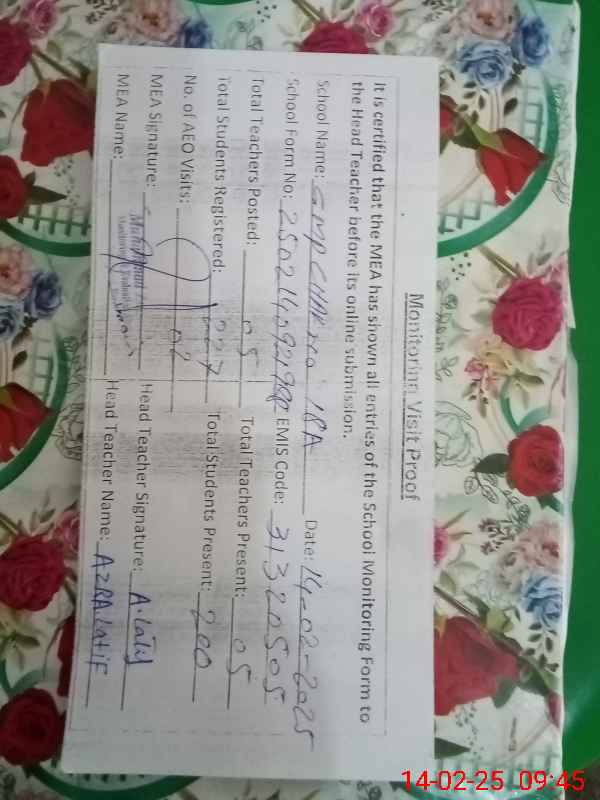 Monitoring Visit Proof
It is certified that the MEA has shown all entries of the School Monitoring Form to
the Head Teacher before its online submission.
School Name: GMPS CHAK NO. 1RA Date: 14-02-2025
School Form No: EMIS Code: 31320505
Total Teachers Posted: 05 Total Teachers Present: 05
Total Students Registered: 227 Total Students Present: 200
No. of AEO Visits: 02
MEA Signature: Head Teacher Signature: A.latif
MEA Name: Muhammad Head Teacher Name: AZRA latif
14-02-25 09:45